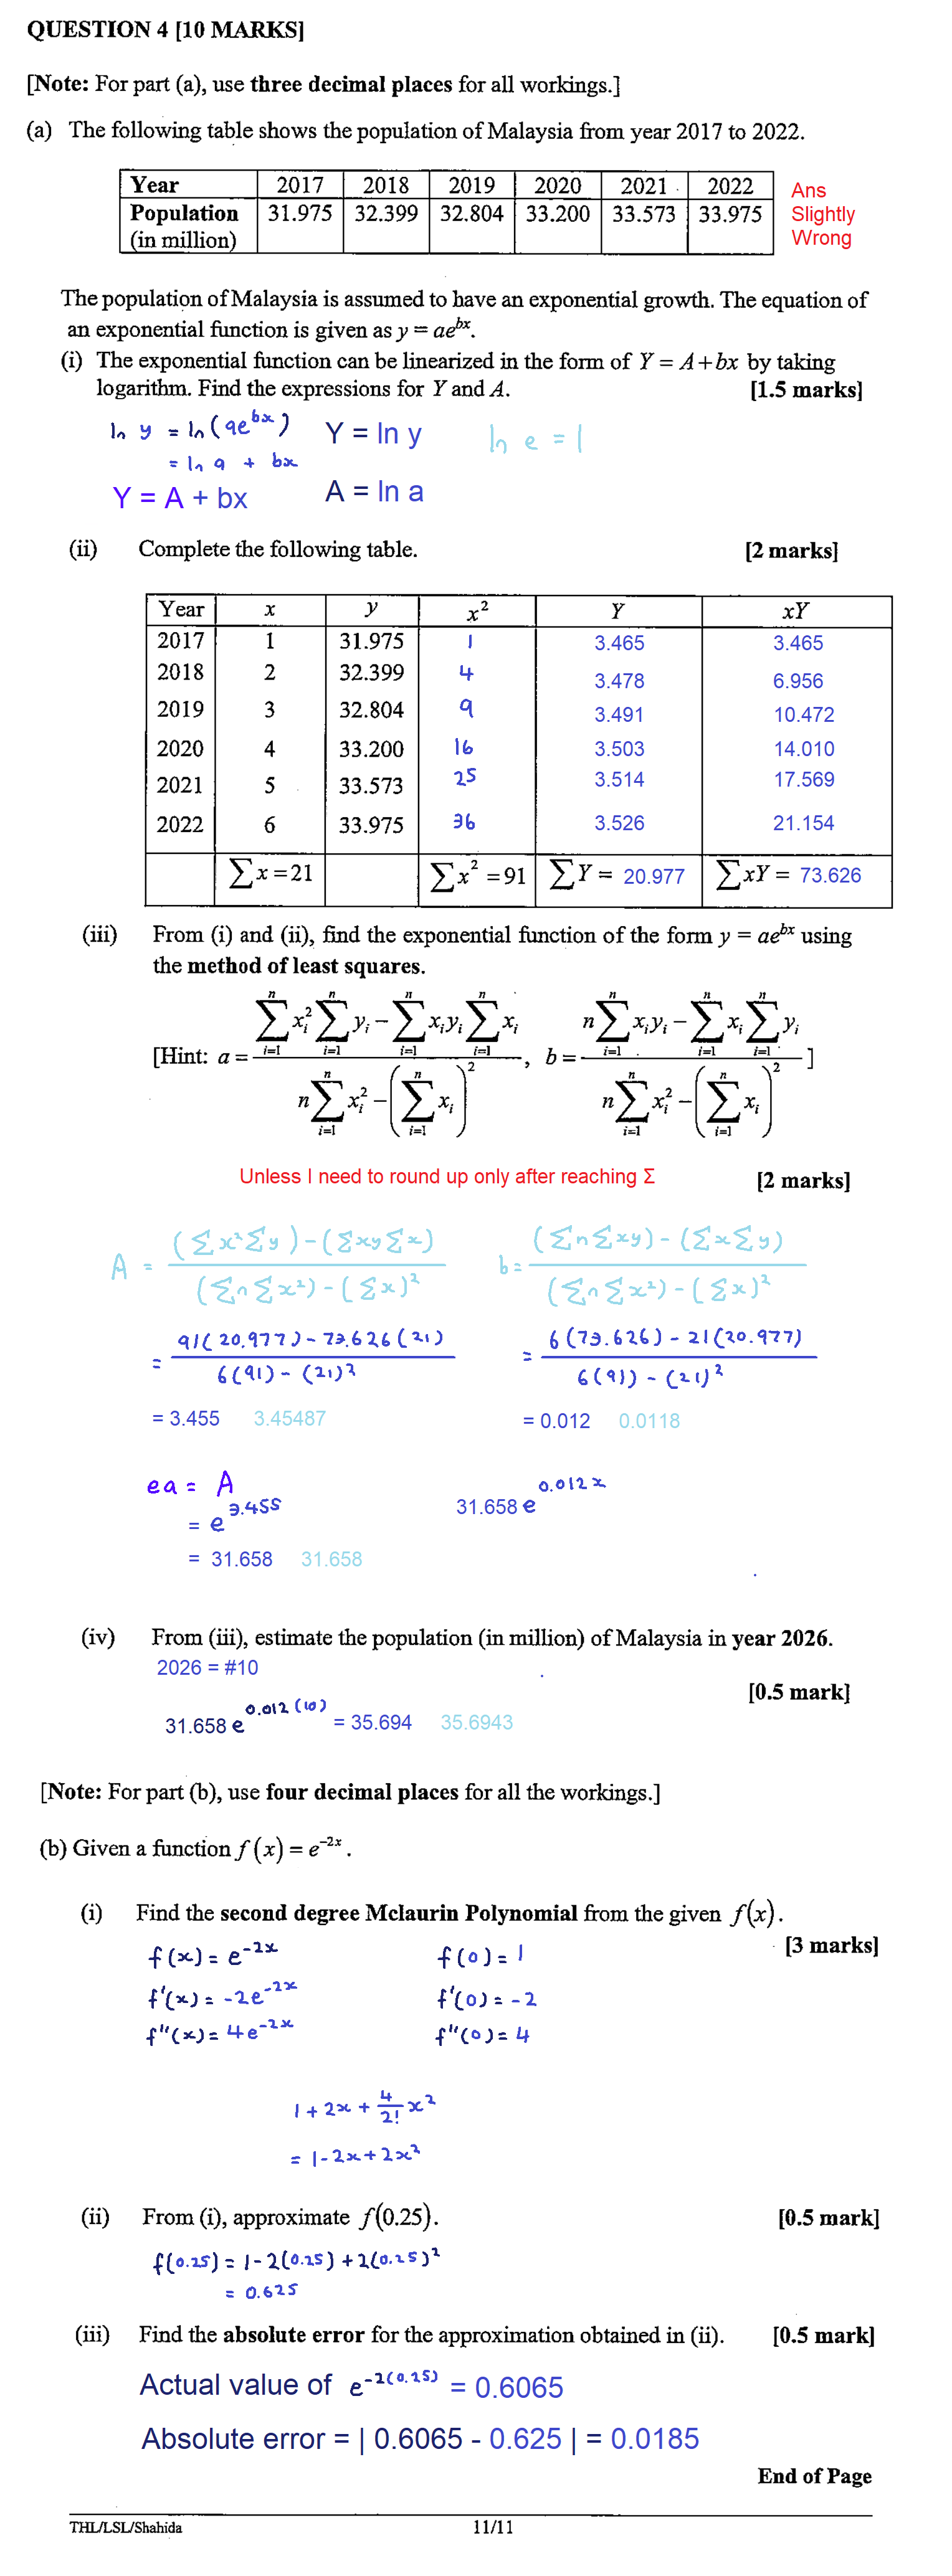 QUESTION 4 [10 MARKS]
[Note: For part (a), use three decimal places for all workings.]
(a) The following table shows the population of Malaysia from year 2017 to 2022.
Year 2017 2018 2019 2020 2021 2022
Population (in million) 31.975 32.399 32.804 33.200 33.573 33.975
Ans
Slightly
Wrong
The population of Malaysia is assumed to have an exponential growth. The equation of
an exponential function is given as y = ae^{bx}.
(i) The exponential function can be linearized in the form of Y = A+bx by taking
logarithm. Find the expressions for Y and A. [1.5 marks]
ln y = ln(ae^{bx}) Y = ln y ln e = 1
= ln a + bx
Y = A + bx A = ln a
(ii) Complete the following table. [2 marks]
Year x y x² Y xY
2017 1 31.975 1 3.465 3.465
2018 2 32.399 4 3.478 6.956
2019 3 32.804 9 3.491 10.472
2020 4 33.200 16 3.503 14.010
2021 5 33.573 25 3.514 17.569
2022 6 33.975 36 3.526 21.154
∑x=21 ∑x² =91 ∑Y = 20.977 ∑xY = 73.626
(iii) From (i) and (ii), find the exponential function of the form y = ae^{bx} using
the method of least squares.
[Hint: a = (∑_{i=1}^{n} x_i² ∑_{i=1}^{n} y_i − ∑_{i=1}^{n} x_i y_i ∑_{i=1}^{n} x_i) / (n∑_{i=1}^{n} x_i² − (∑_{i=1}^{n} x_i)²), b = (n∑_{i=1}^{n} x_i y_i − ∑_{i=1}^{n} x_i ∑_{i=1}^{n} y_i) / (n∑_{i=1}^{n} x_i² − (∑_{i=1}^{n} x_i)²) ]
Unless I need to round up only after reaching Σ [2 marks]
A = ((∑x²∑y) - (∑xy∑x)) / ((∑n∑x²) - (∑x)²) b = ((∑n∑xy) - (∑x∑y)) / ((∑n∑x²) - (∑x)²)
= (91(20.977) - 73.626(21)) / (6(91) - (21)²) = (6(73.626) - 21(20.977)) / (6(91) - (21)²)
= 3.455 3.45487 = 0.012 0.0118
ea = A 31.658 e^{0.012x}
= e^{3.455}
= 31.658 31.658
(iv) From (iii), estimate the population (in million) of Malaysia in year 2026.
2026 = #10
[0.5 mark]
31.658 e^{0.012(10)} = 35.694 35.6943
[Note: For part (b), use four decimal places for all the workings.]
(b) Given a function f(x) = e^{-2x}.
(i) Find the second degree Mclaurin Polynomial from the given f(x).
[3 marks]
f(x) = e^{-2x} f(0) = 1
f'(x) = -2e^{-2x} f'(0) = -2
f''(x) = 4e^{-2x} f''(0) = 4
1 + 2x + 4/2! x²
= 1 - 2x + 2x²
(ii) From (i), approximate f(0.25). [0.5 mark]
f(0.25) = 1 - 2(0.25) + 2(0.25)²
= 0.625
(iii) Find the absolute error for the approximation obtained in (ii). [0.5 mark]
Actual value of e^{-2(0.25)} = 0.6065
Absolute error = | 0.6065 - 0.625 | = 0.0185
End of Page
THL/LSL/Shahida 11/11